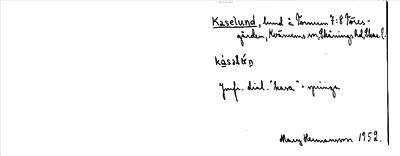 Kaselund, lund å Tornum 7:8 Töres-
gården, Kvänums sn, Skånings hd, Skar. l.
kásalén
Jmfr. dial. "kasa" - springa
Mary Hermansson 1952.